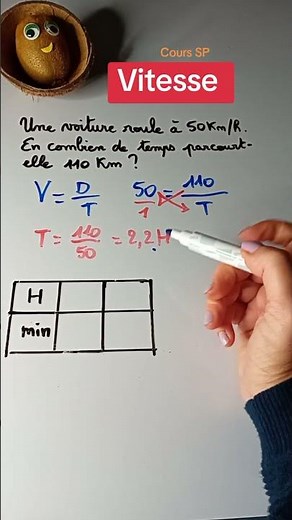 Cours SP
Vitesse
Une voiture roule à 50 Km/h.
En combien de temps parcourt-
elle 110 Km ?
V = D/T 50/1 = 110/T
T = 110/50 = 2,2H
H
min